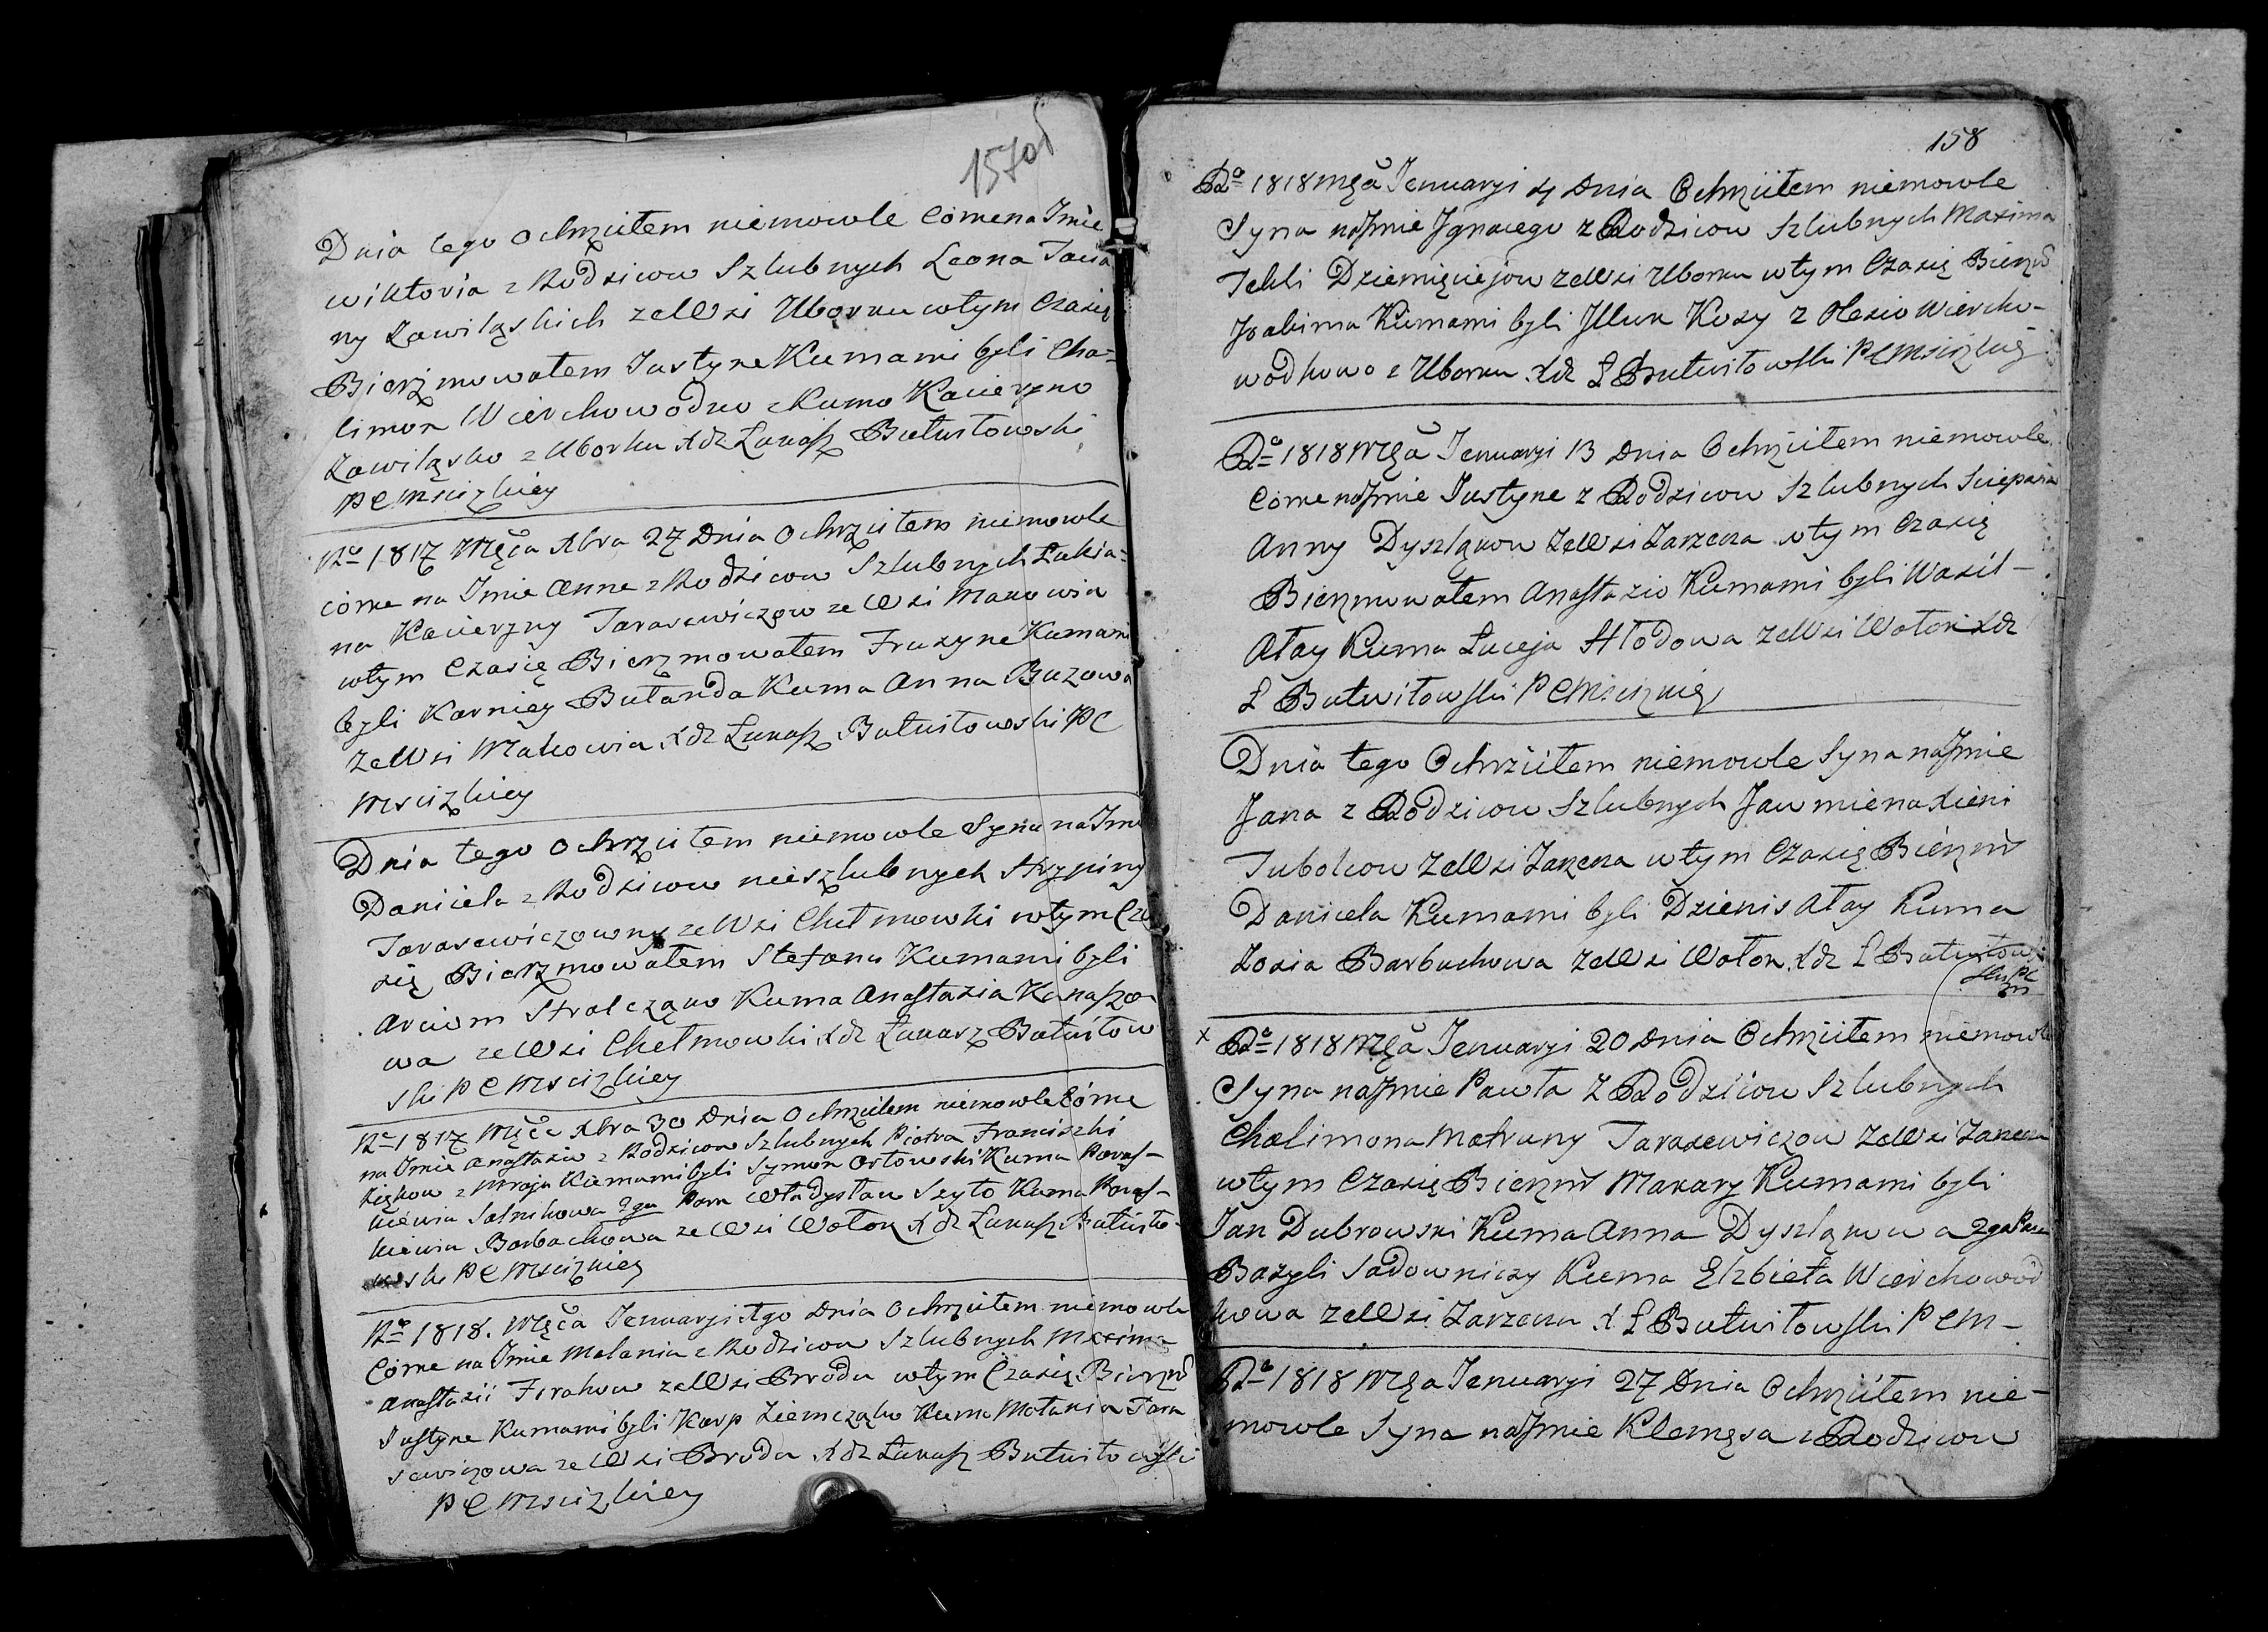 157об
Dnia tego ochrzciłem niemowle Córne na Jmie
Wiktoria z Rodziców Szlubnych Leona Tacia
ny Zawiląskich ze Wsi Uborku w tym Czasię
Bierzmowałem Justyne Kumami byli Cha=
limon Wierchowodko z Kumo Kacierzno
Zawiląsko z Uborku Xdz Łukasz Butwiłowski
P C Mscizkiey
Rº 1817 Męca Xbra 27 Dnia Ochrzciłem niemowle
córne na Jmie Anne z Rodziców Szlubnych Łukia=
na Kacierzny Tarasewiczow ze Wsi Makowia
w tym Czasię Bierzmowałem Fruzyne Kumami
byli Karniey Butanda Kuma Anna Buzowa
ze Wsi Makowia Xdz Łukasz Butwiłowski P C
Mscizkiey
Dnia tego ochrzciłem niemowle Syna na Jmi
Daniela z Rodziców nieszlubnych Hrypiny
Tarasewiczowny ze Wsi Chełmowki w tym Cza
się Bierzmowałem Stefana Kumami byli
Arciom Stralcząko Kuma Anastazia Kanaszo
wa ze Wsi Chełmowki Xdz Łukasz Butwiłow
ski P C Mscizkiey
Rº 1817 Męca Xbra 30 Dnia Ochrzciłem niemowle Córne
na Jmie Anastazio z Rodziców Szlubnych Piotra Franciszki
Ziękow z Mroja Kumami byli Symon Orłowski Kuma Paras=
kiewia Salnikowa 2ga Para Władysław Szyło Kuma Paras=
kiewia Barbachowa ze Wsi Wołok Xdz Łukasz Butwiło-
wski P C Mscizkiey
Rº 1818. Męca Jenuaryi 1go Dnia Ochrzciłem niemowle
Córne na Jmie Malania z Rodziców Szlubnych Maxima
Anastazii Forakow ze Wsi Brodu w tym Czasię Bierzm
Justyne Kumami byli Karp Ziemcząko Kuma Małania Tara
sewiczowa ze Wsi Brodu Xdz Łukasz Butwiłowski
P C Mscizkiey
158
Rº 1818 Męca Jenuaryi 4 Dnia Ochrzciłem niemowle
Syna na Jmie Jgnacego z Rodziców Szlubnych Maxima
Tekli Dziemięciejow ze Wsi Uborku w tym Czasię Bierzm
Joakima Kumami byli Jlluk Kozy z Olesio Wiercho-
wodkowo z Uborku Xdz Ł Butwiłowski P C Mscizkiey
Rº 1818 Męca Jenuaryi 13 Dnia Ochrzciłem niemowle
Córne na Jmie Justyne z Rodziców Szlubnych Sciepana
Anny Dyszląkow ze Wsi Zarzecza w tym Czasię
Bierzmowałem Anastazio Kumami byli Wasil-
Ałay Kuma Łuceja Hłodowa ze Wsi Wołok Xdz
Ł Butwiłowski P C Mscizkiey
Dnia tego Ochrzciłem niemowle Syna na Jmie
Jana z Rodziców Szlubnych Jaumiena Xieni
Tubolcow ze Wsi Zarzecza w tym Czasię Bierzm
Daniela Kumami byli Dzienis Ałay Kuma
Zosia Barbuchowa ze Wsi Wołok Xdz Ł Butwiłow
ski P C
m
x Rº 1818 Męca Jenuaryi 20 Dnia Ochrzciłem niemowle
Syna na Jmie Pawła z Rodziców Szlubnych
Chalimona Matruny Tarasewiczow ze Wsi Zarzecza
w tym Czasię Bierzm Makary Kumami byli
Jan Dubrowski Kuma Anna Dyszląkowa 2ga Para
Bazyli Sadowniczy Kuma Elzbieta Wierchowod
kowa ze Wsi Zarzecza X Ł Butwiłowski P C M-
Rº 1818 Męca Jenuaryi 27 Dnia Ochrzciłem nie-
mowle Syna na Jmie Klemęsa z Rodziców